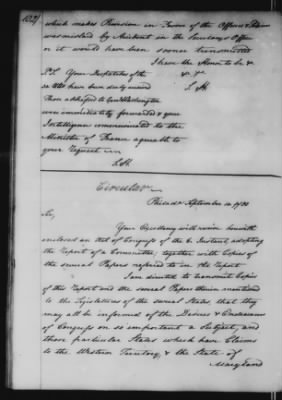 which makes Provision in Favor of the Officers &
was mislaid by Accident in the Secretarys Office
or it would have been sooner transmitted
I have the Honor to be &
P.S. Your Dispatches of the &. &.
have been duly received S. H.
Those addressed to Genl Washington
were immediately forwarded & your
Intelligence communicated to the
Minister of France agreeable to
your Request
S.H.
Circular
Philada September 10 1780
Sir,
Your Excellency will receive herewith
enclosed an Act of Congress of the 6 Instant, adopting
the Report of a Committee, together with Copies of
the several Papers referred to in the Report
I am directed to transmit Copies
of this Report and the several Papers therein mentioned
to the Legislatures of the several States that they
may all be informed of the Desires & Endeavours
of Congress on so important a Subject, and
those particular States which have Claims
to the Western Territory, & the State of
Maryland